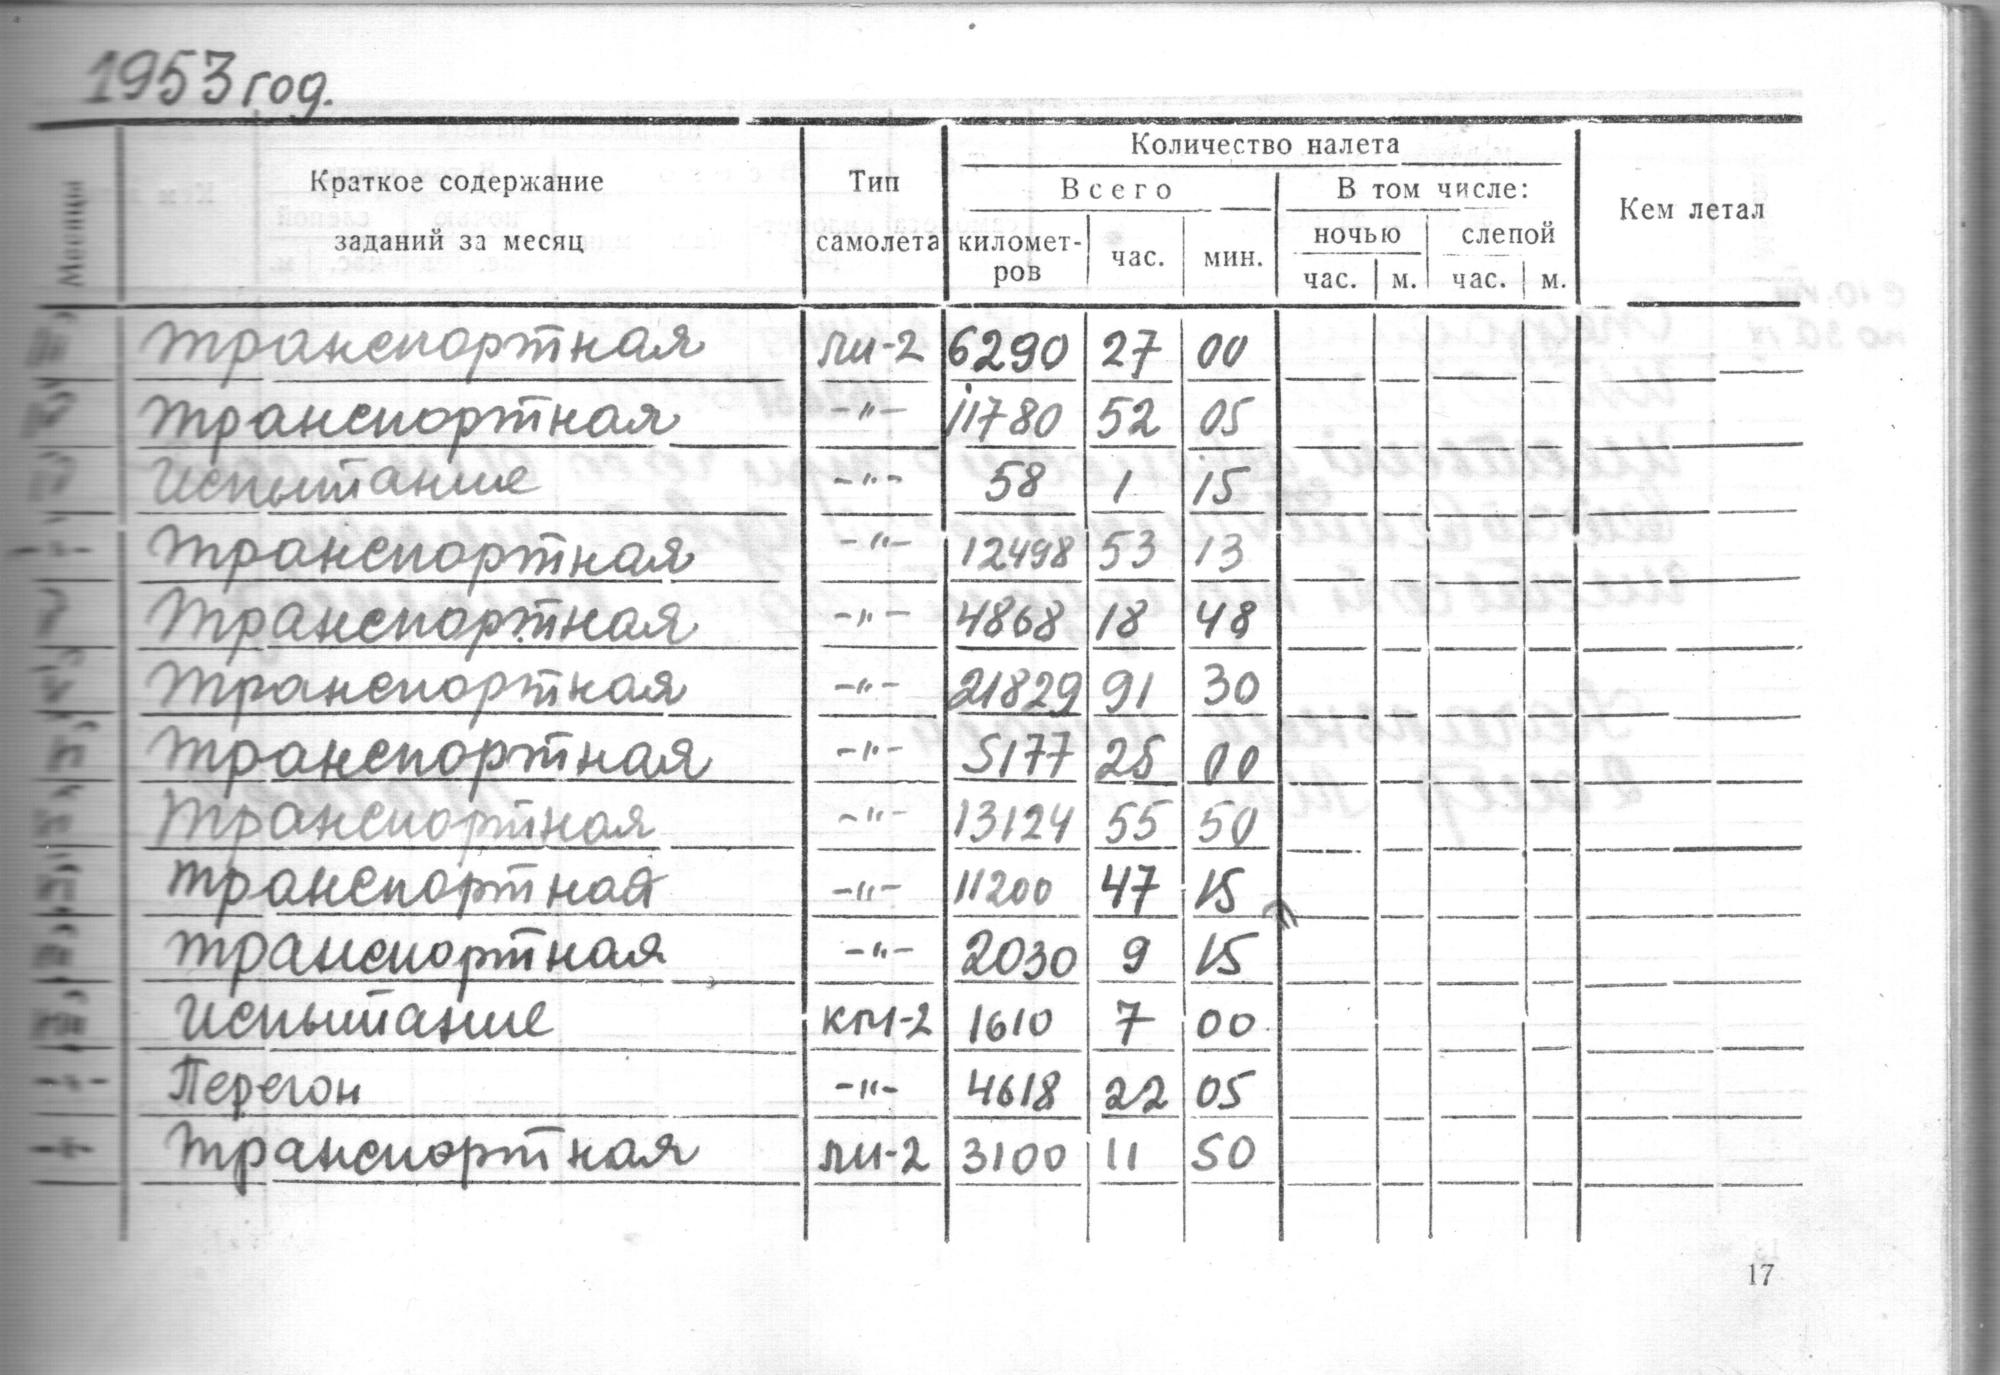 1953 год.
Количество налета
Месяцы Краткое содержание заданий за месяц Тип самолета Всего В том числе: Кем летал
километ-ров час. мин. ночью слепой
час. м. час. м.
Транспортная ли-2 6290 27 00
Транспортная -"- 11780 52 05
Испытание -"- 58 1 15
Транспортная -"- 12498 53 13
Транспортная -"- 4868 18 48
Транспортная -"- 21829 91 30
Транспортная -"- 5177 25 00
Транспортная -"- 13124 55 50
Транспортная -"- 11200 47 15
Транспортная -"- 2030 9 15
Испытание 1610 7 00
-"- Перегон -"- 4618 22 05
-"- Транспортная ли-2 3100 11 50
17